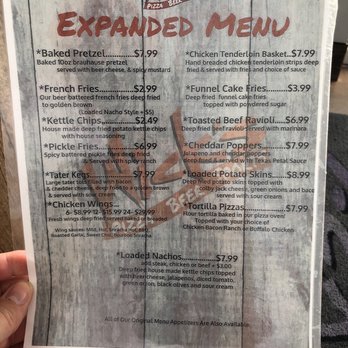 PIZZA BEER
EXPANDED MENU
*Baked Pretzel..............$7.99
Baked 10oz brauhause pretzel
served with beer cheese, & spicy mustard
*French Fries................$2.99
Our beer battered french fries deep fried
to golden brown
(Loaded Nacho Style + $5)
*Kettle Chips...............$2.49
House made deep fried potato kettle chips
with house seasoning
*Pickle Fries................$6.99
Spicy battered pickle fries deep fried
& served with spicy ranch
*Tater Kegs...................$7.99
Large tater tots filled with bacon
& cheddar cheese, deep fried to a golden brown
& served with sour cream
*Chicken Wings...
6- $8.99 12-$15.99 24- $28.99
Fresh wings deep fried served naked or breaded
Wing sauces: Mild, Hot, Sriracha Hot, BBQ,
Roasted Garlic, Sweet Chili, Bourbon Sriracha
*Chicken Tenderloin Basket...$7.99
Hand breaded chicken tenderloin strips deep
fried & served with fries and choice of sauce
*Funnel Cake Fries..........$3.99
Deep fried funnel cake fries
topped with powdered sugar
*Toasted Beef Ravioli.......$6.99
Deep fried beef ravioli served with marinara
*Cheddar Poppers..........$7.99
Jalapeno and cheddar poppers
Deep fried and served with Texas Petal Sauce
*Loaded Potato Skins.......$8.99
Deep fried potato skins topped with
colby jack cheese, green onions, and bacon
and served with sour cream
*Tortilla Pizzas...............$7.99
Flour tortilla baked in our pizza oven
Topped with your choice of
Chicken Bacon Ranch or Buffalo Chicken
*Loaded Nachos..............$7.99
add steak, chicken or beef + $3.00
Deep fried house made kettle chips topped
with beer cheese, jalapenos, diced tomato,
green onion, black olives and sour cream
All of Our Original Menu Appetizers Are Also Available